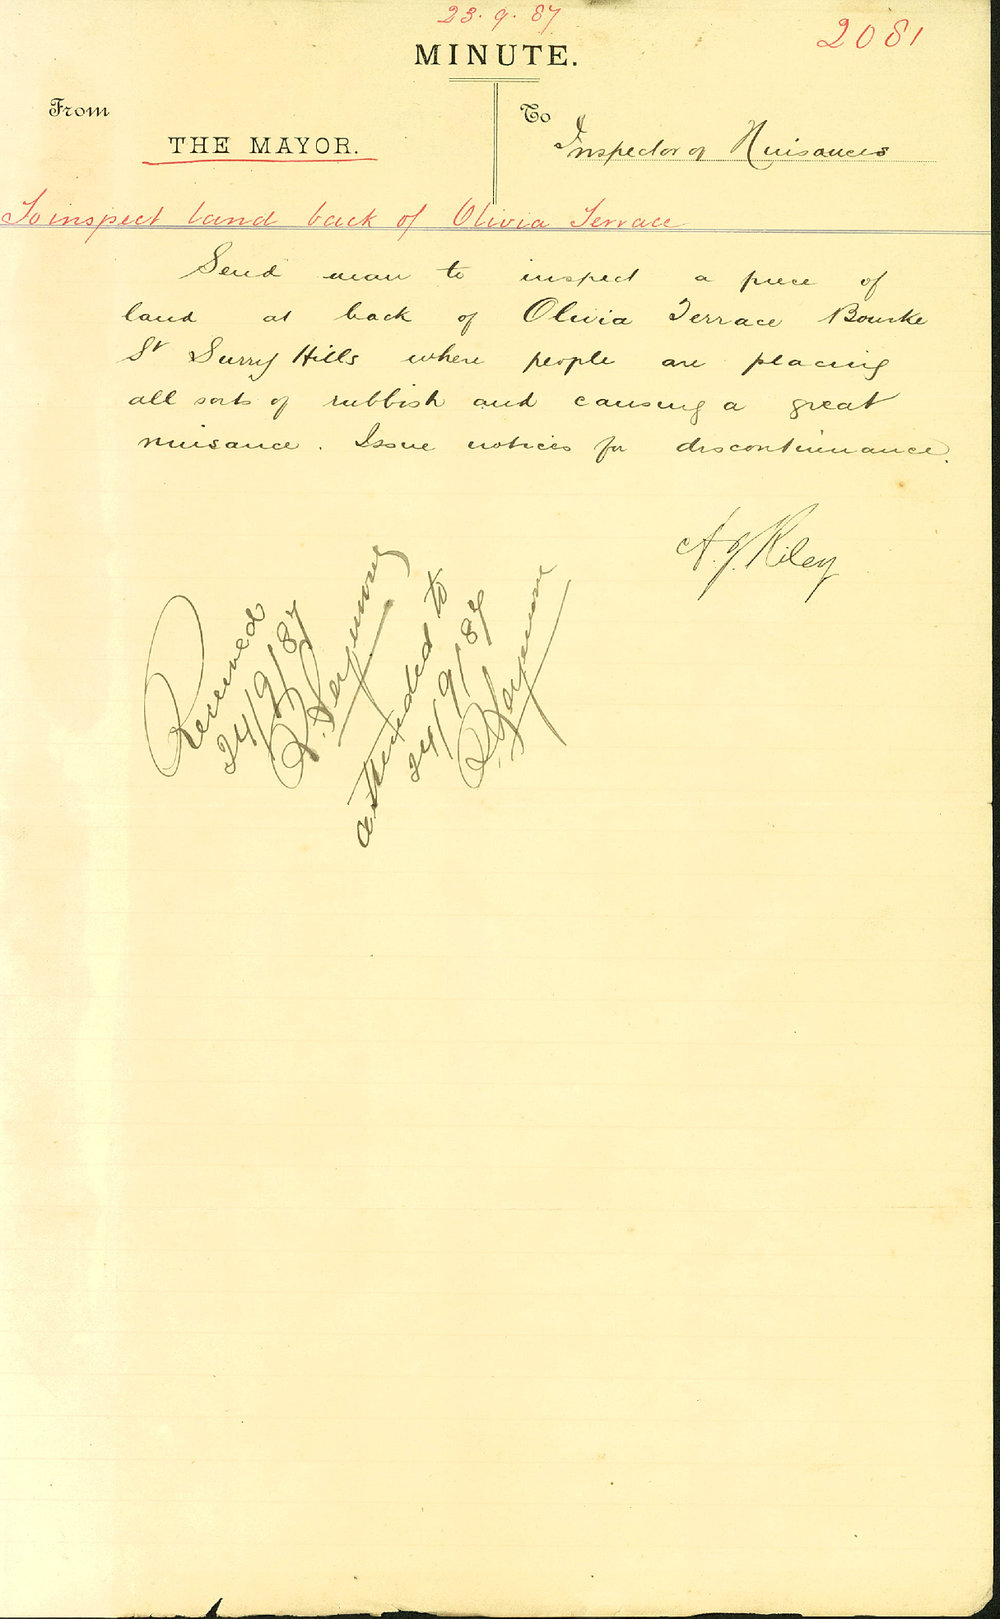 23.9.87
2081
MINUTE.
From
To
THE MAYOR.
Inspector of Nuisances
To inspect land back of Olivia Terrace
Send man to inspect a piece of
land at back of Olivia Terrace Bourke
St Surry Hills where people are placing
all sorts of rubbish and causing a great
nuisance. Issue notices for discontinuance.
A.J. Riley
Received
24/9/87
R. Seymour
attended to
24/9/87
R. Seymour